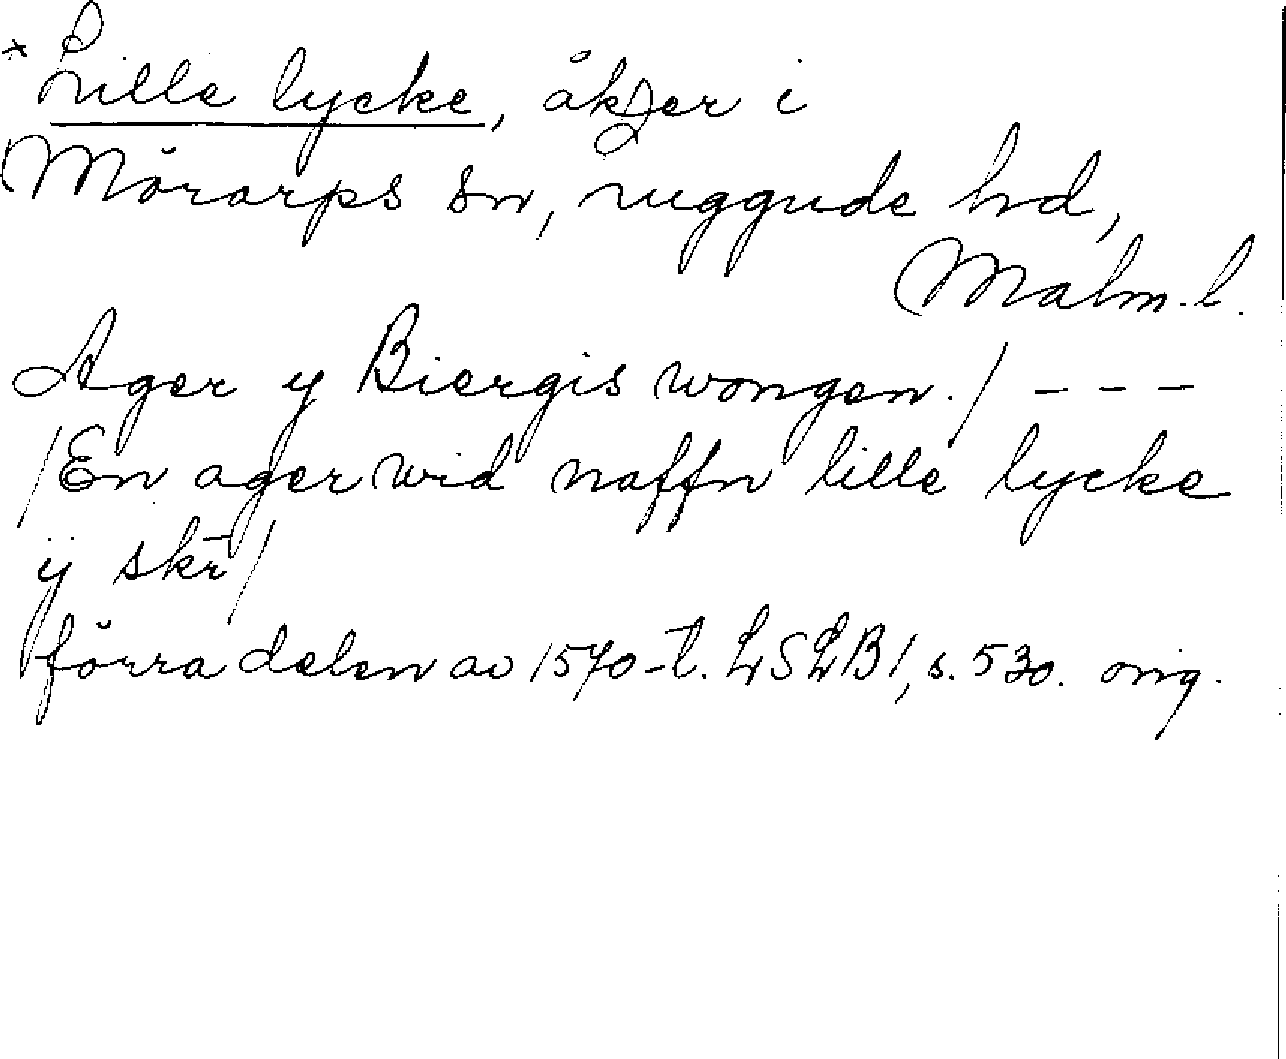 *Lille lycke, åker i
Mörarps sn, Luggude hd,
Malm.l.
Ager y Biergis wongen./ - - -
/En ager wid naffn lille lycke
ÿ skr̄/
förra delen av 1570-t. LSLB1, s. 530. orig.